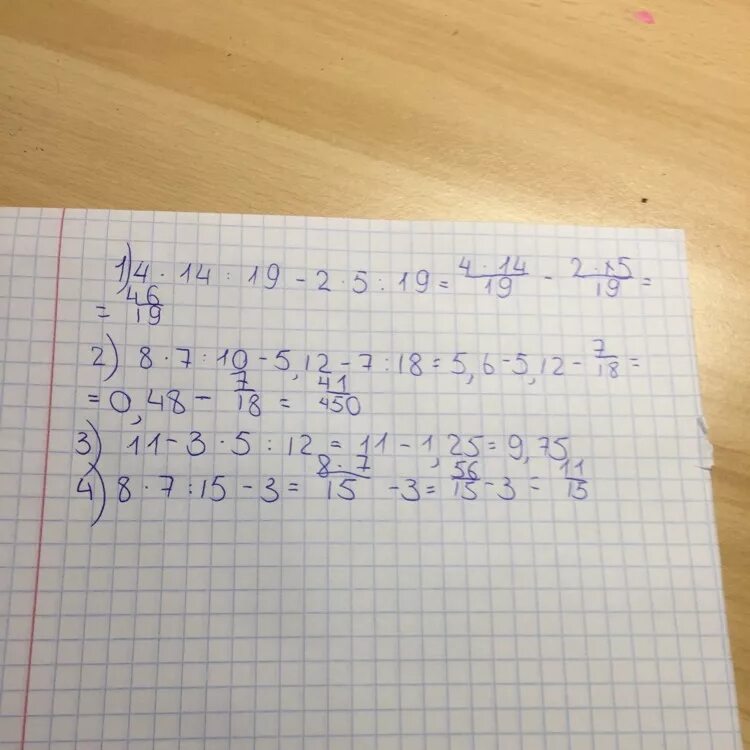 1) 4 · 14 : 19 - 2 · 5 : 19 = 4 · 14/19 - 2 · 5/19 =
= 46/19
2) 8 · 7 : 10 - 5,12 - 7 : 18 = 5,6 - 5,12 - 7/18 =
= 0,48 - 7/18 = 41/450
3) 11 - 3 · 5 : 12 = 11 - 1,25 = 9,75
4) 8 · 7 : 15 - 3 = 8 · 7/15 - 3 = 56/15 - 3 = 11/15